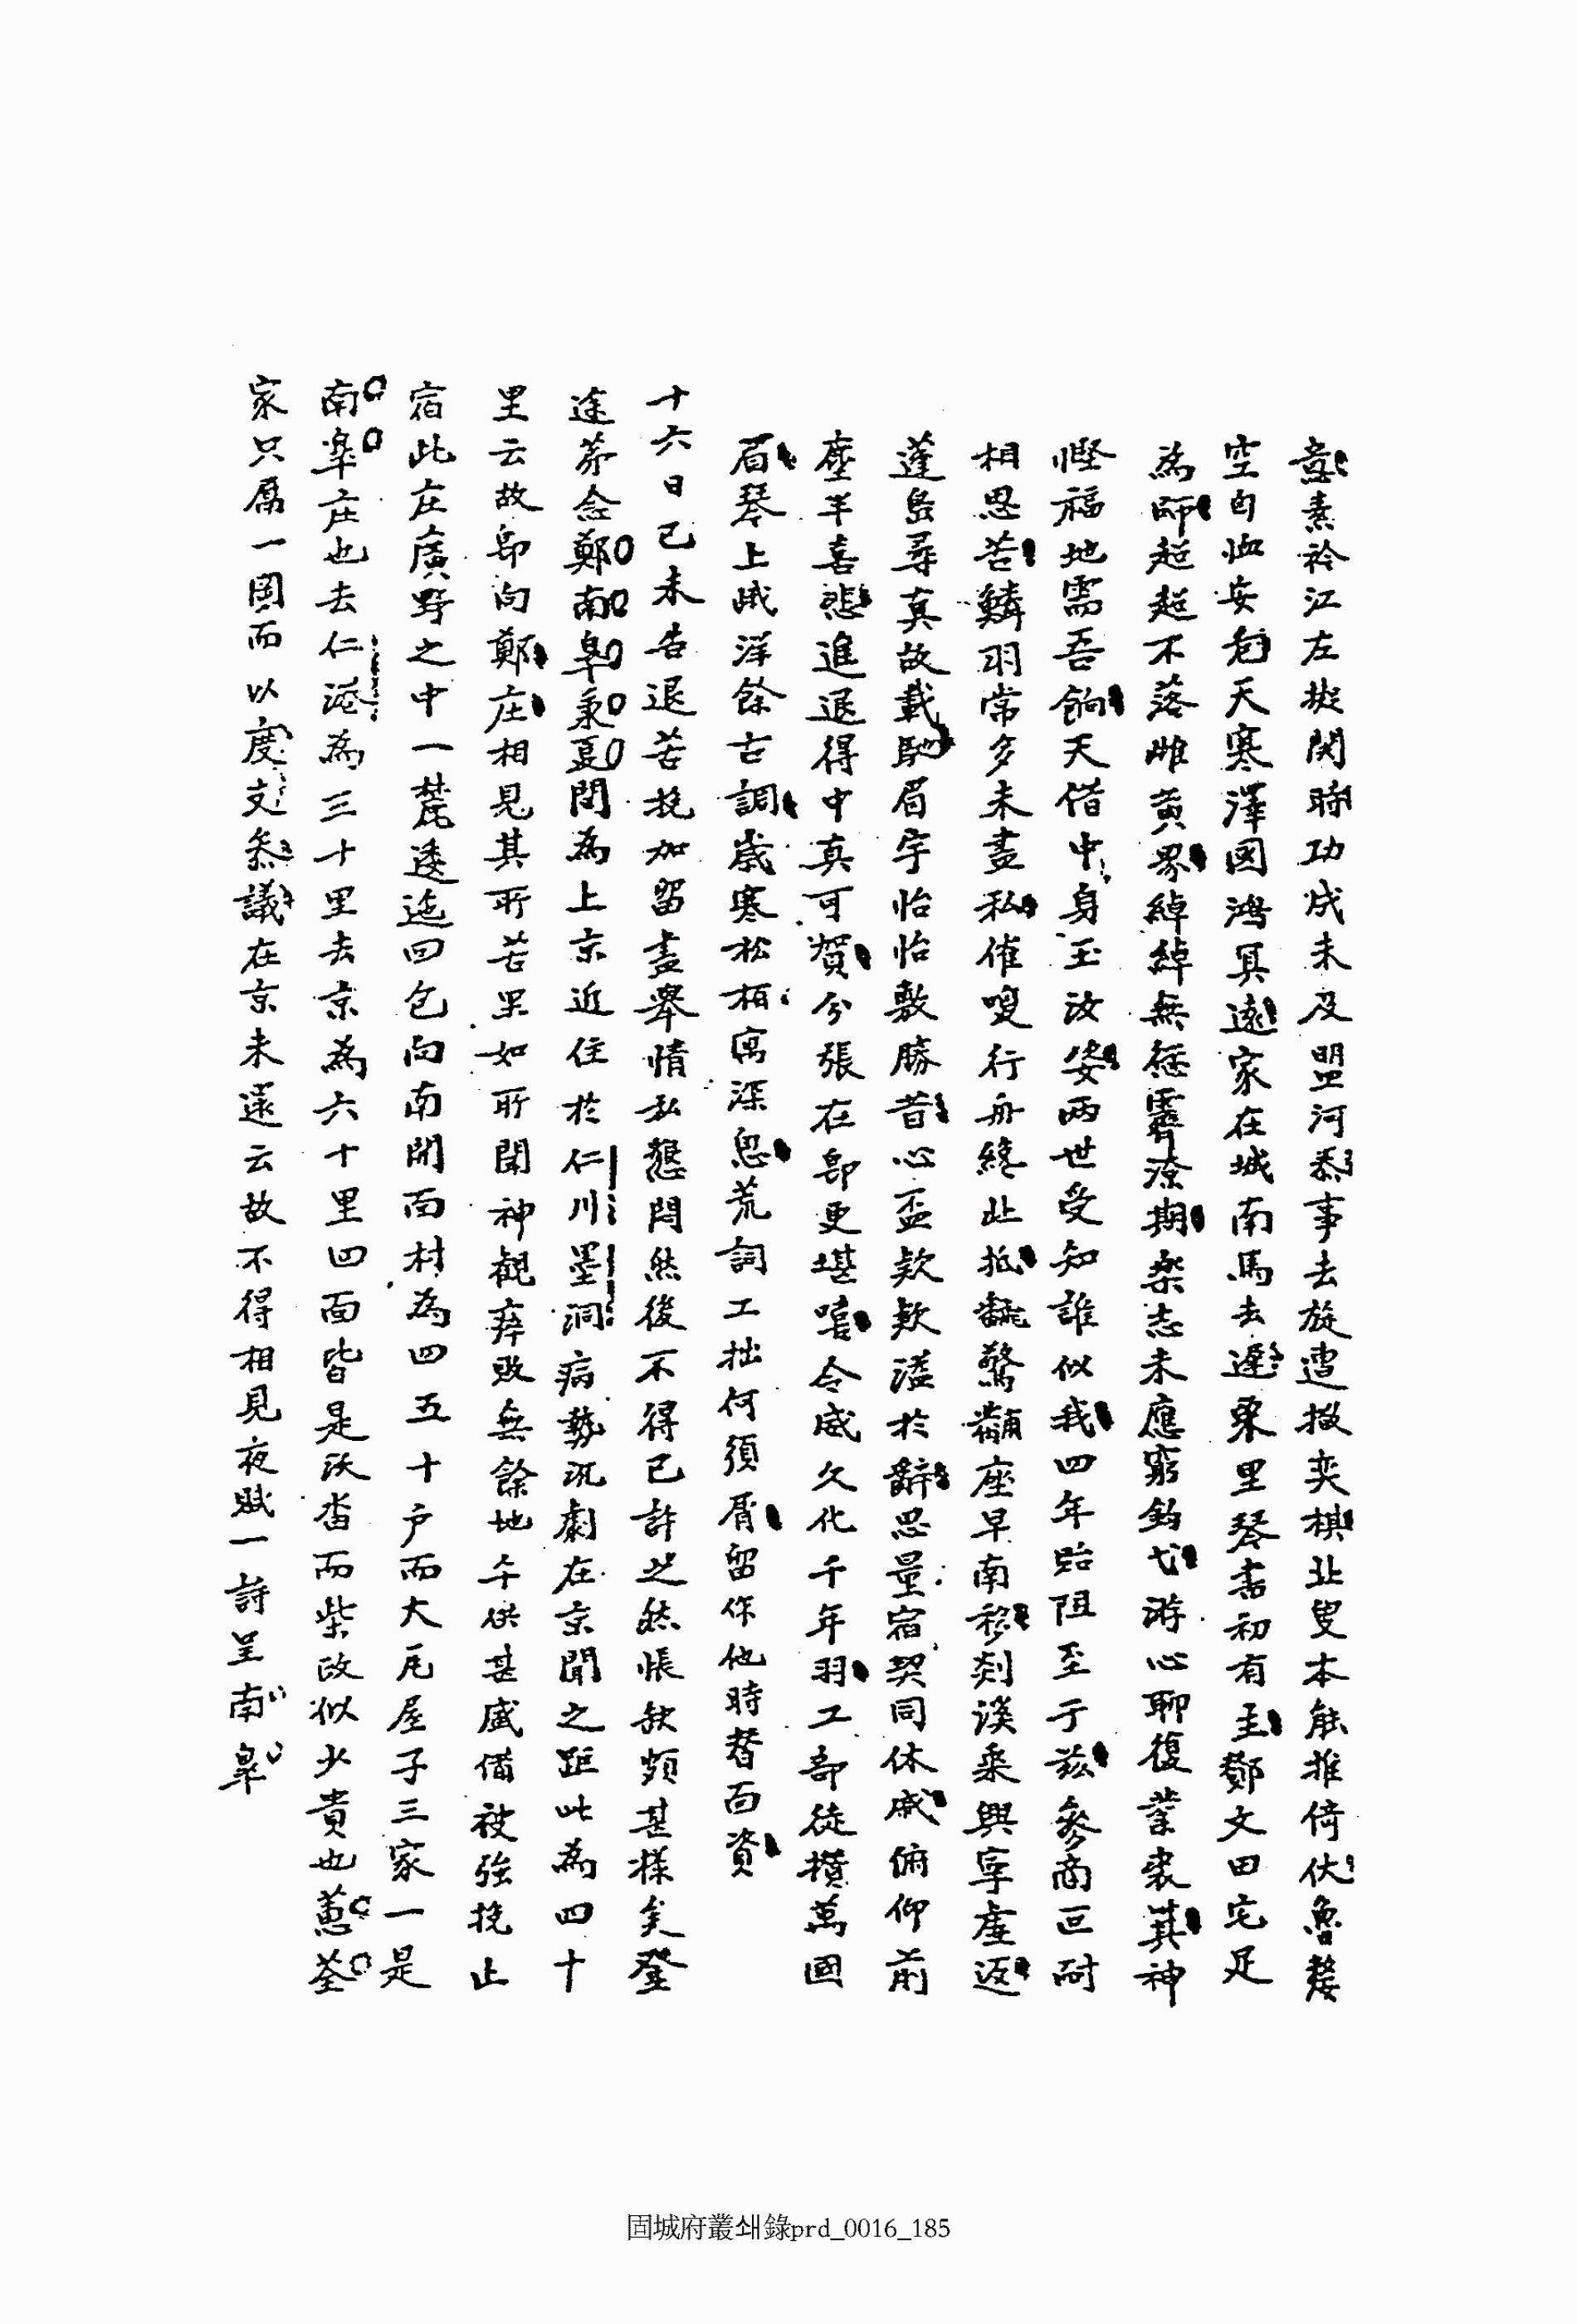 意素衿江左擬関時功成未及盟河忝事去旋遭撤奕棋北叟本能推倚伏魯嫠
空自恤安危天寒澤國鴻冥遠家在城南馬去遲栗里琴書初有主鄭文田宅足
為師超超不落雌黄界綽綽無愆霽潦期樂志未應窮釣弋游心聊復業裘箕神
慳福地需吾餉天借中身玉汝姿兩世受知誰似我四年貽阻至于兹參商叵耐
相思苦鱗羽常多未盡私催喚行舟繞止抵飜驚黼座早南移剡溪乗興寧虛返
蓬島尋真故載馳眉宇怡怡敷勝昔心盃款款溢於辭思量宿契同休戚俯仰前
塵半喜悲進退得中真可賀分張在即更堪嘻令威久化千年羽工部徒攢萬國
眉琴上峨洋餘古調歲寒松栢寓深思荒詞工拙何須屑留作他時替面資
十六日己未告退苦挽加留盡舉情私懇悶然後不得已許之然悵缺頗甚様矣登
途荞念鄭南皐秉夏聞為上京近住於仁川墨洞病勢沉劇在京聞之距此為四十
里云故即向鄭庄相見其所苦果如所聞神觀瘁敗無餘地午供甚盛備被強挽止
宿此庄廣野之中一麓逶迤回包向南開面村為四五十戶而大瓦屋子三家一是
南皐庄也去仁港為三十里去京為六十里四面皆是沃畓而柴政似少貴也蕙荃
家只屬一園而以度支叅議在京未還云故不得相見夜賦一詩呈南皐
固城府叢쇄錄prd_0016_185